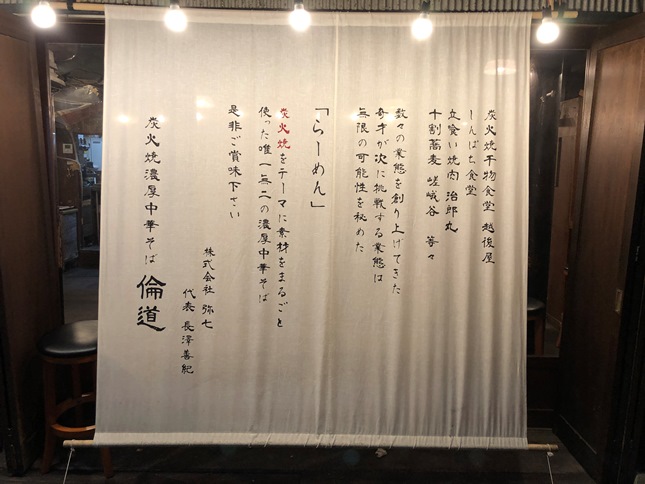 炭火焼干物食堂 越後屋
しんぱち食堂
立喰い焼肉 治郎丸
十割蕎麦 嵯峨谷 等々
数々の業態を創り上げてきた
奇才が次に挑戦する業態は
無限の可能性を秘めた
「らーめん」
炭火焼をテーマに素材をまるごと
使った唯一無二の濃厚中華そば
是非ご賞味下さい
株式会社 弥七
代表 長澤善紀
炭火焼濃厚中華そば 倫道